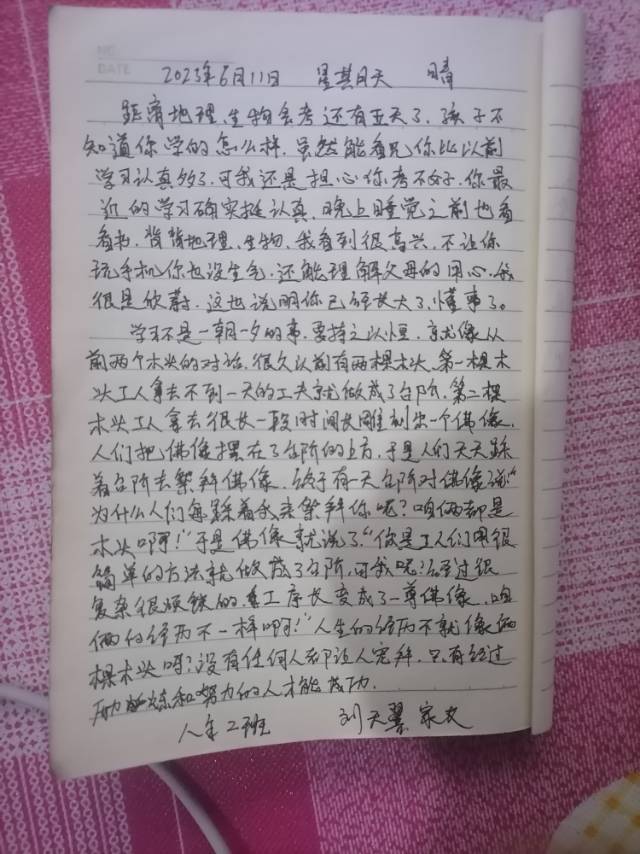 NO.
DATE
2023年6月11日 星期天 晴
距离地理、生物会考还有五天了,孩子不
知道你学的怎么样,虽然能看见你比以前
学习认真多了,可我还是担心你考不好,你最
近的学习确实挺认真,晚上睡觉之前也看
看书,背背地理、生物,我看到很高兴,不让你
玩手机你也没生气,还能理解父母的用心,我
很是欣慰,这也说明你已经长大了、懂事了。
学习不是一朝一夕的事,要持之以恒,就像从
前两个木头的对话,很久以前有两棵木头,第一棵木
头工人拿去不到一天的工夫就做成了台阶,第二棵
木头工人拿去很长一段时间长雕刻出一个佛像,
人们把佛像摆在了台阶的上方,于是人们天天踩
着台阶去祭拜佛像,终于有一天台阶对佛像说:“
为什么人们每踩着我来祭拜你呢?咱俩都是
木头啊!”于是佛像就说了:“你是工人们用很
简单的方法就做成了台阶,可我呢?经过很
复杂很烦锁的工序长变成了一尊佛像,咱
俩的经历不一样啊!”人生的经历不就像两
棵木头吗?没有任何人都让人崇拜,只有经过
磨炼和努力的人才能成功.
八年二班 刘天翼家长